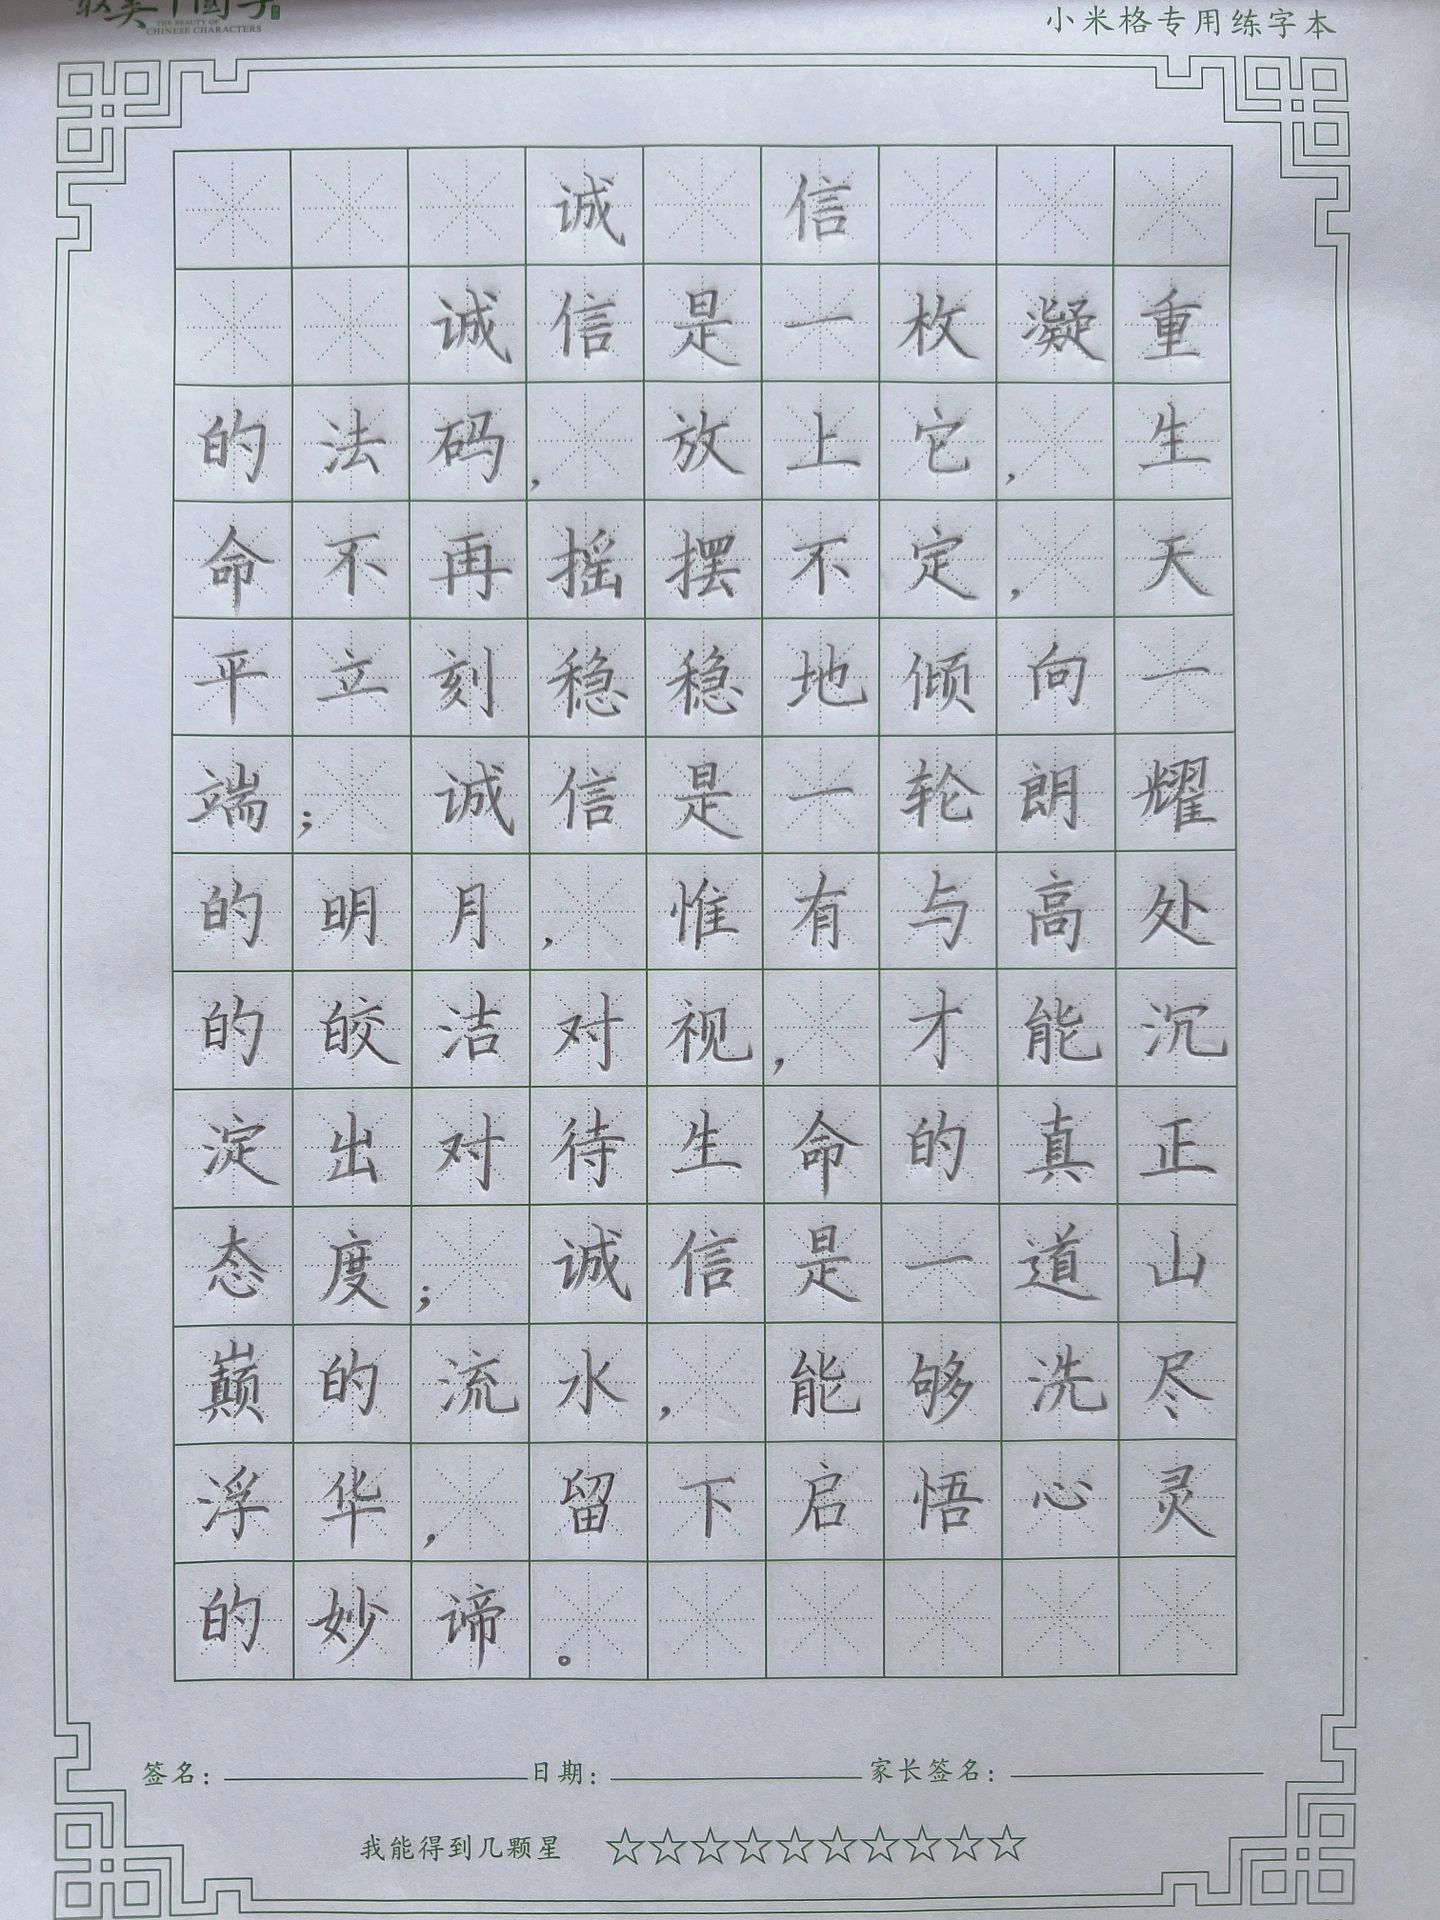 最美中国字
THE BEAUTY OF
CHINESE CHARACTERS
小米格专用练字本
诚 信
诚信是一枚凝重
的法码，放上它，生
命不再摇摆不定，天
平立刻稳稳地倾向一
端；诚信是一轮朗耀
的明月，惟有与高处
的皎洁对视，才能沉
淀出对待生命的真正
态度；诚信是一道山
巅的流水，能够洗尽
浮华，留下启悟心灵
的妙谛。
签名： 日期： 家长签名：
我能得到几颗星 ☆☆☆☆☆☆☆☆☆☆